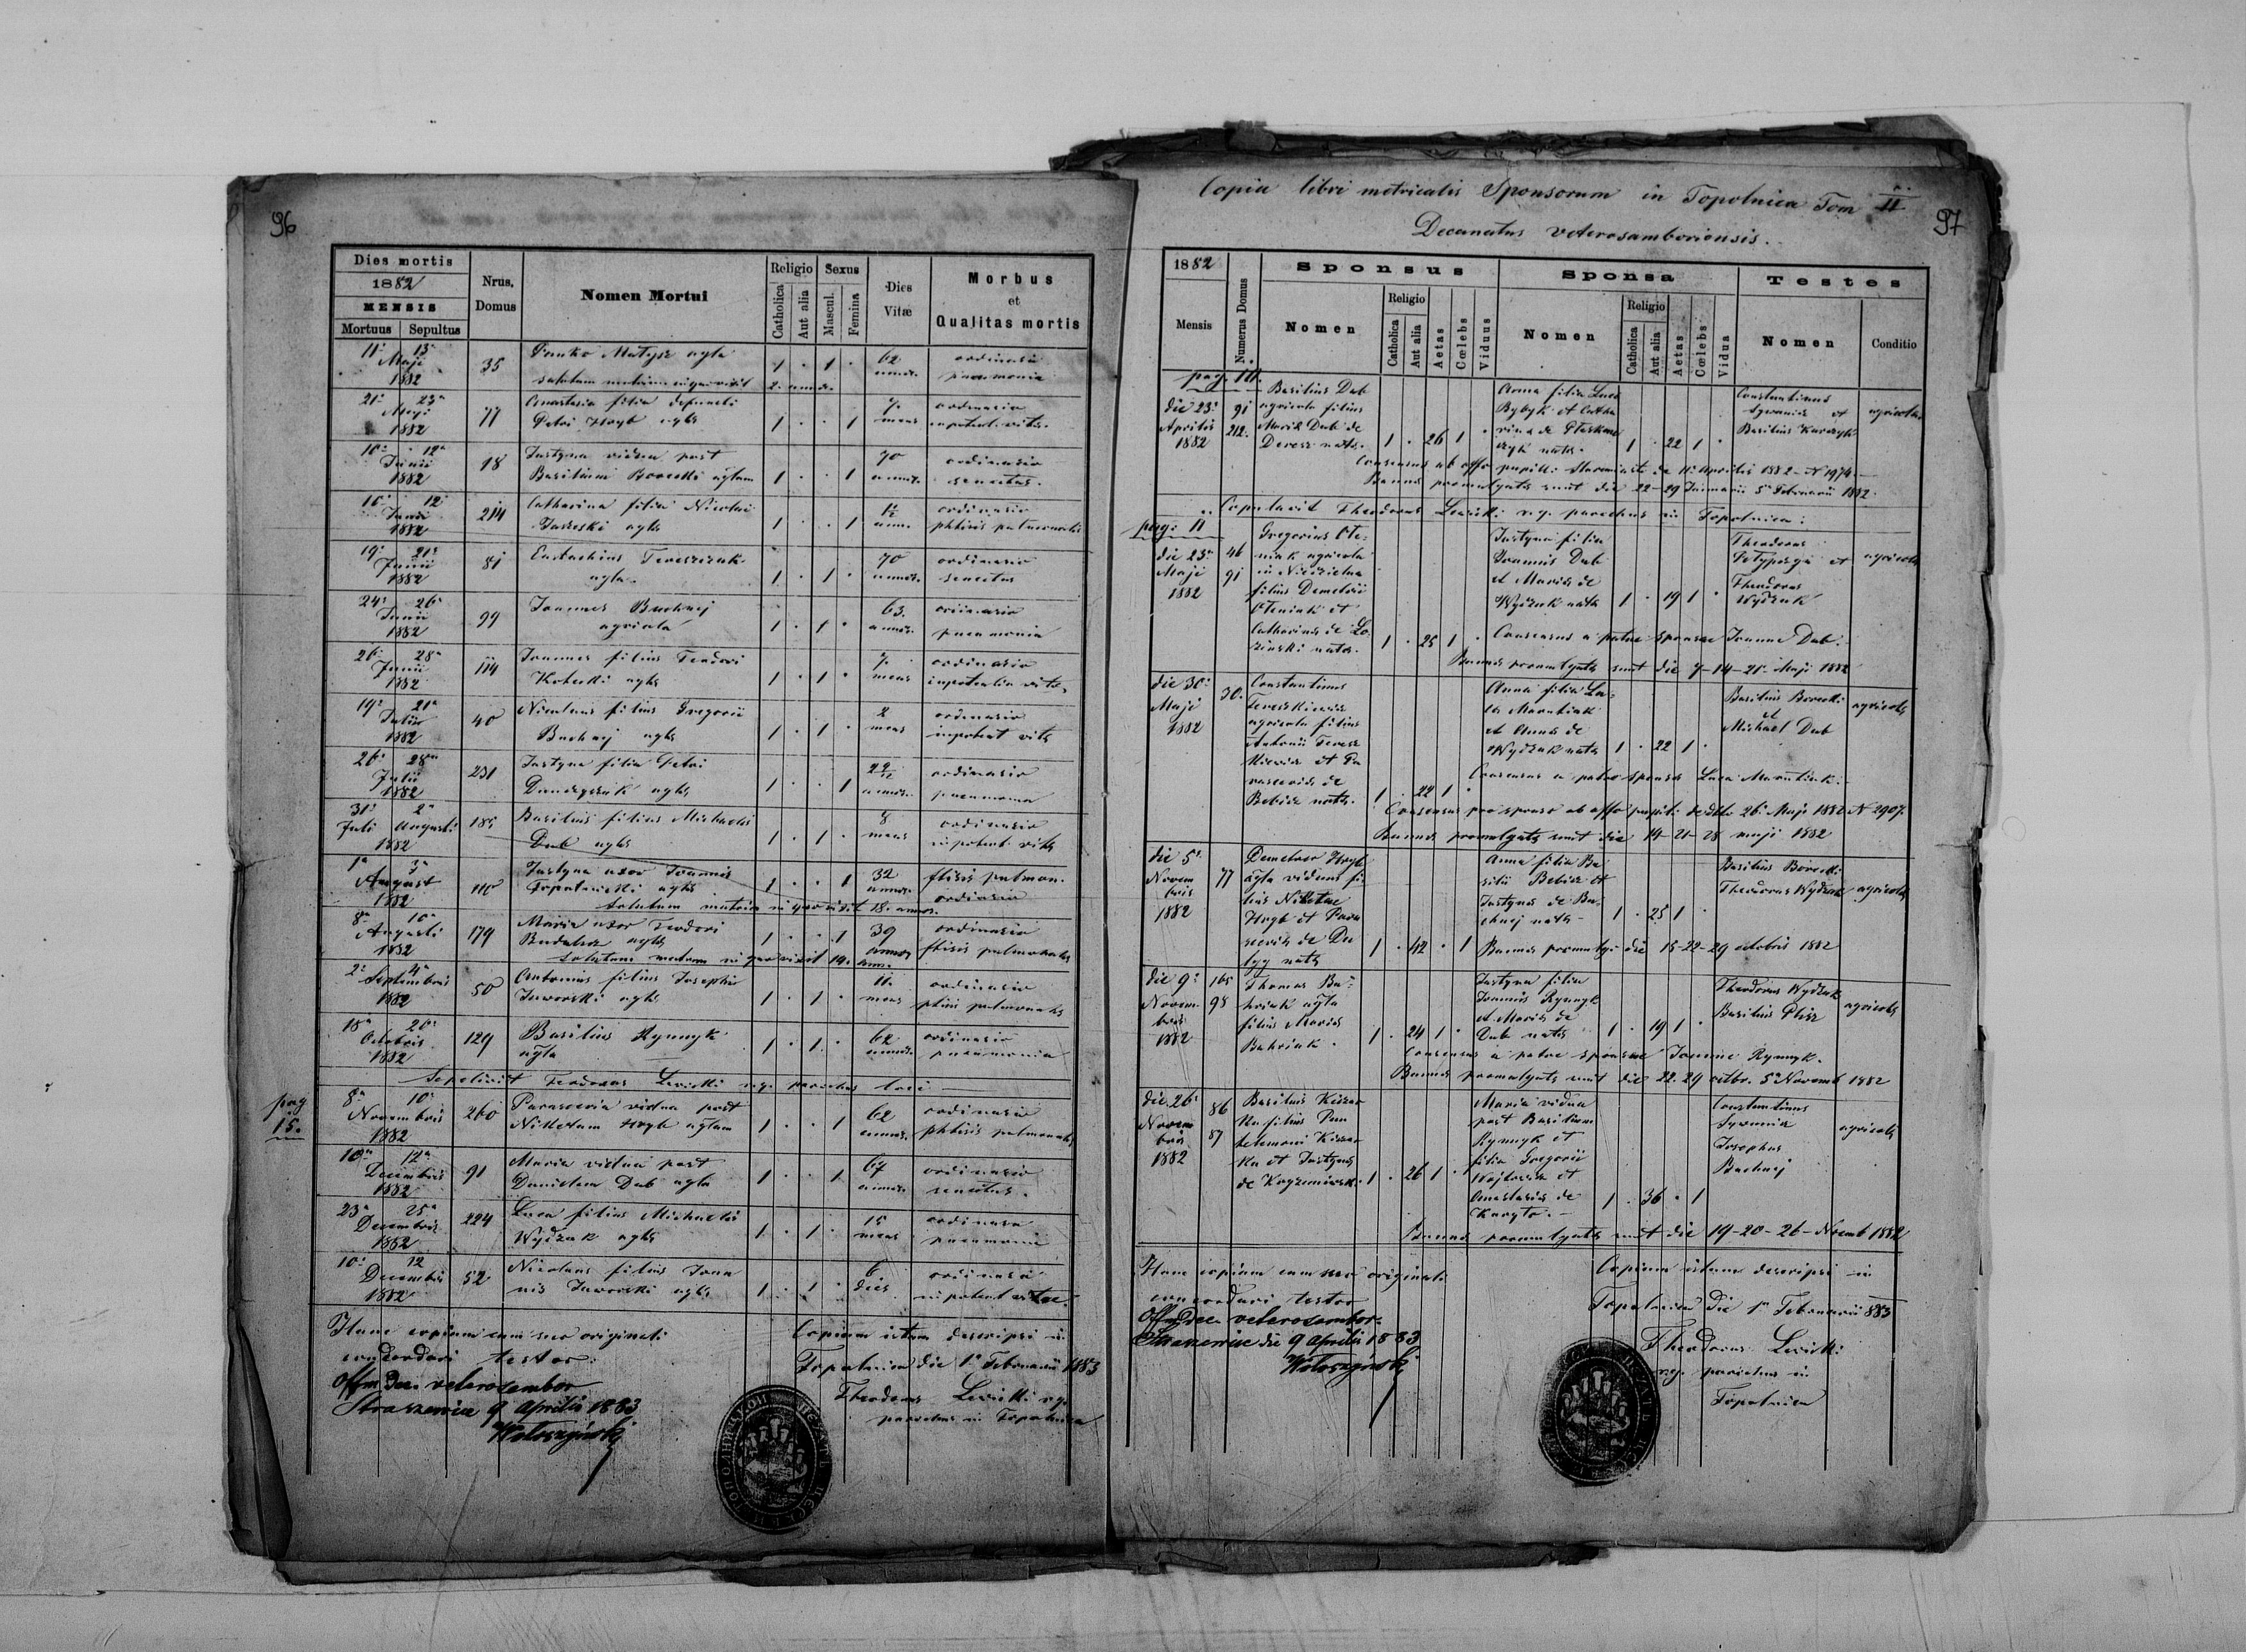 96
Dies mortis
1882
MENSIS
Mortuus Sepultus
Nrus. Domus
Nomen Mortui
Religio
Catholica
Aut alia
Sexus
Mascul.
Femina
Dies Vitæ
Morbus
et
Qualitas mortis
11a 13a
Maji
1882
35
Matysz agla
1 . 1 .
62
annor.
ordinaria
pneumonia
21a 23a
Maji
1882
77
Anastasia filia defuncti
Petri Hryb agla
1 . . 1
7
mens
ordinaria
impotent. vitæ
10a 12a
Junii
1882
18
Justyna vidua post
Basilium Borecki aglam
1 . . 1
70
annor.
ordinaria
senectus.
Junii
1882
214
Catharina filia Nicolai
agla
1 . . 1
ordinaria
phtisis pulmonalis
19a 21a
Junii
1882
81
Eustachius Tereszczak
agla
1 . 1 .
70
annor.
ordinaria
senectus
24a 26a
Junii
1882
99
Joannes Buchnij
agricola
1 . 1 .
63.
annor.
ordinaria
pneumonia
26a 28a
Junii
1882
114
Joannes filius Teodori
agla
1 . 1 .
7
mens
ordinaria
impotentia vitæ
19a 21a
Julii
1882
40
Nicolaus filius Gregorii
Buchnij agla
1 . 1 .
2
mens
ordinaria
impotent vitæ
26a 28a
Julii
1882
231
Justyna filia Petri
agla
1 . . 1
annor.
ordinaria
pneumonia
31a 2a
Juli Augusti
1882
185
Basilius filius Michaelis
Dub agla
1 . 1 .
8
mens
ordinaria
impotent. vitæ
1a 3a
August
1882
110
Justyna uxor Joannis
Topolnicki agla
1 . . 1
32
annor.
ftisis pulmon.
ordinaria
solutum matrim in quo vixit 18. annor.
8a 10a
Augusti
1882
179
Maria uxor Teodori
agla
1 . . 1
39
annor
ordinaria
ftisis pulmonalis
solutum matrim in quo vixit 19. annor.
2a 4a
Septembris
1882
50
Antonius filius Josephi
Jaworski agla
1 . 1 .
11.
mens
ordinaria
ptisis pulmonalis
18a 20a
Octobris
1882
129
Basilius Rymyk
agla
1 . 1 .
62
annor.
ordinaria
pneumonia
Sepelivit Teodorus Lewicki parochus loci
pag
15.
8a 10a
Novembris
1882
260
Parascevia vidua post
Niketam Hryb aglam
1 . . 1
62
annor.
ordinaria
phtisis pulmonalis
10a 12a
Decembris
1882
91
Maria vidua post
Danielem Dub agla
1 . . 1
67
annor.
ordinaria
senectus.
23a 25a
Decembris
1882
224
Luca filius Michaelis
Wydzak agla
1 . 1 .
15
mens
ordinaria
pneumonia
10a 12
Decembris
1882
52
Nicolaus filius Joan
nis Jaworski agla
1 . 1 .
6
dies
ordinaria
impotent vitæ.
Hanc copiam cum suo originali
concordari testor:
Offm Dec. veterosambor
Straszewice 9 Aprilis 1883
Wołoszyński
Copiam istam descripsi in
Topolnica die 1a Februarii 1883
Theodorus Lewicki
parochus in Topolnica
97
Copia libri metricalis Sponsorum in Topolnica Tom II
Decanatus veterosamboriensis.
1882
Mensis
Numerus Domus
Sponsus
Nomen
Religio
Catholica
Aut alia
Aetas
Cœlebs
Viduus
Sponsa
Nomen
Religio
Catholica
Aut alia
Aetas
Cœlebs
Vidua
Testes
Nomen
Conditio
pag. 10.
die 23a
Aprilis
1882
91
212.
Basilius Dub
agricola filius
Mariæ Dub de
Deresz natæ.
1 . 26 1 .
Anna filia Lucæ
Rybyk et Catha
rina de
natæ.
1 . 22 1 .
Constantinus
et
Basilius
agricolæ
Consensus ab offo pupill. Staromiasto de 11a Aprilis 1882 N 1974
Banna promulgata sunt die 22-29 Januarii 5a Februarii 1882.
Copulavit Theodorus Lewicki parochus in Topolnica:
pag: 11
die 23a
Maji
1882
46
91
Gregorius Ole
niak agricola
in
filius Demetrii
Oleniak et
Catharinæ de Lo
zinski natæ.
1 . 25 1 .
Justyna filia
Joannis Dub
et Mariæ de
Wydzak natæ
1 . 19 1 .
Theodorus
et
Theodorus
Wydzak
agricolæ
Consensus a patre sponsæ Joanne Dub:
Banna promulgata sunt die 7-14-21a Maji 1882
die 30a
Maji
1882
30.
Constantinus
Tereszkiewicz
agricola filius
Antonii Teresz
kiewicz et Pa
rasceviæ de
Bebisz natæ.
1 . 22 1 .
Anna filia Lu
cæ Marutiak
et Annæ de
Wydzak natæ
1 . 22 1 .
Basilius Borecki
et
Michael Dub
agricolæ
Consensus a patre sponsæ Luca Marutiak.
Consensus pro sponso ab offo pupill. de dto 26a Maji 1882 N 2907.
Banna promulgata sunt die 14-21-28 maji 1882
die 5a
Novem
bris
1882
77
Demeter Hryb
agla viduus fi
lius Niketæ
Hryb et Para
sceviæ de Du
natæ
1 . 42 . 1
Anna filia Ba
silii Bebisz et
Justynæ de Bu
chnij natæ
1 . 25 1 .
Basilius Borecki
Theodorus Wydzak
agricolæ
Banna promulg. die 15-22-29 octobris 1882
die 9a
Novem
bris
1882
165
98
Thomas Ba
hriak agla
filius Mariæ
Bahriak.
1 . 24 1 .
Justyna filia
Joannis Rymyk
et Mariæ de
Dub natæ
1 . 19 1 .
Theodorus Wydzak
Basilius
agricolæ
Consensus a patre sponsæ Joanne Rymyk.
Banna promulgata sunt die 22. 29 octbr. 5a Novemb 1882
die 26a
Novem
bris
1882
86
87
Basilius
filius Pan
telemoni
et Justynæ
de
1 . 26 1 .
Maria vidua
post Basilium
Rymyk et
filia Gregorii
et
Anastasiæ de
1 . 36 . 1
Constantinus
Josephus
Buchnij
agricolæ
Banna promulgata sunt die 19-20-26-Novemb 1882
Hanc copiam cum suo originali
concordari testor
Offm Dec. veterosambor.
Straszewice die 9 Aprilis 1883
Wołoszyński
Copiam istam descripsi in
Topolnica die 1a Februarii 883
Theodorus Lewicki
parochus in
Topolnica